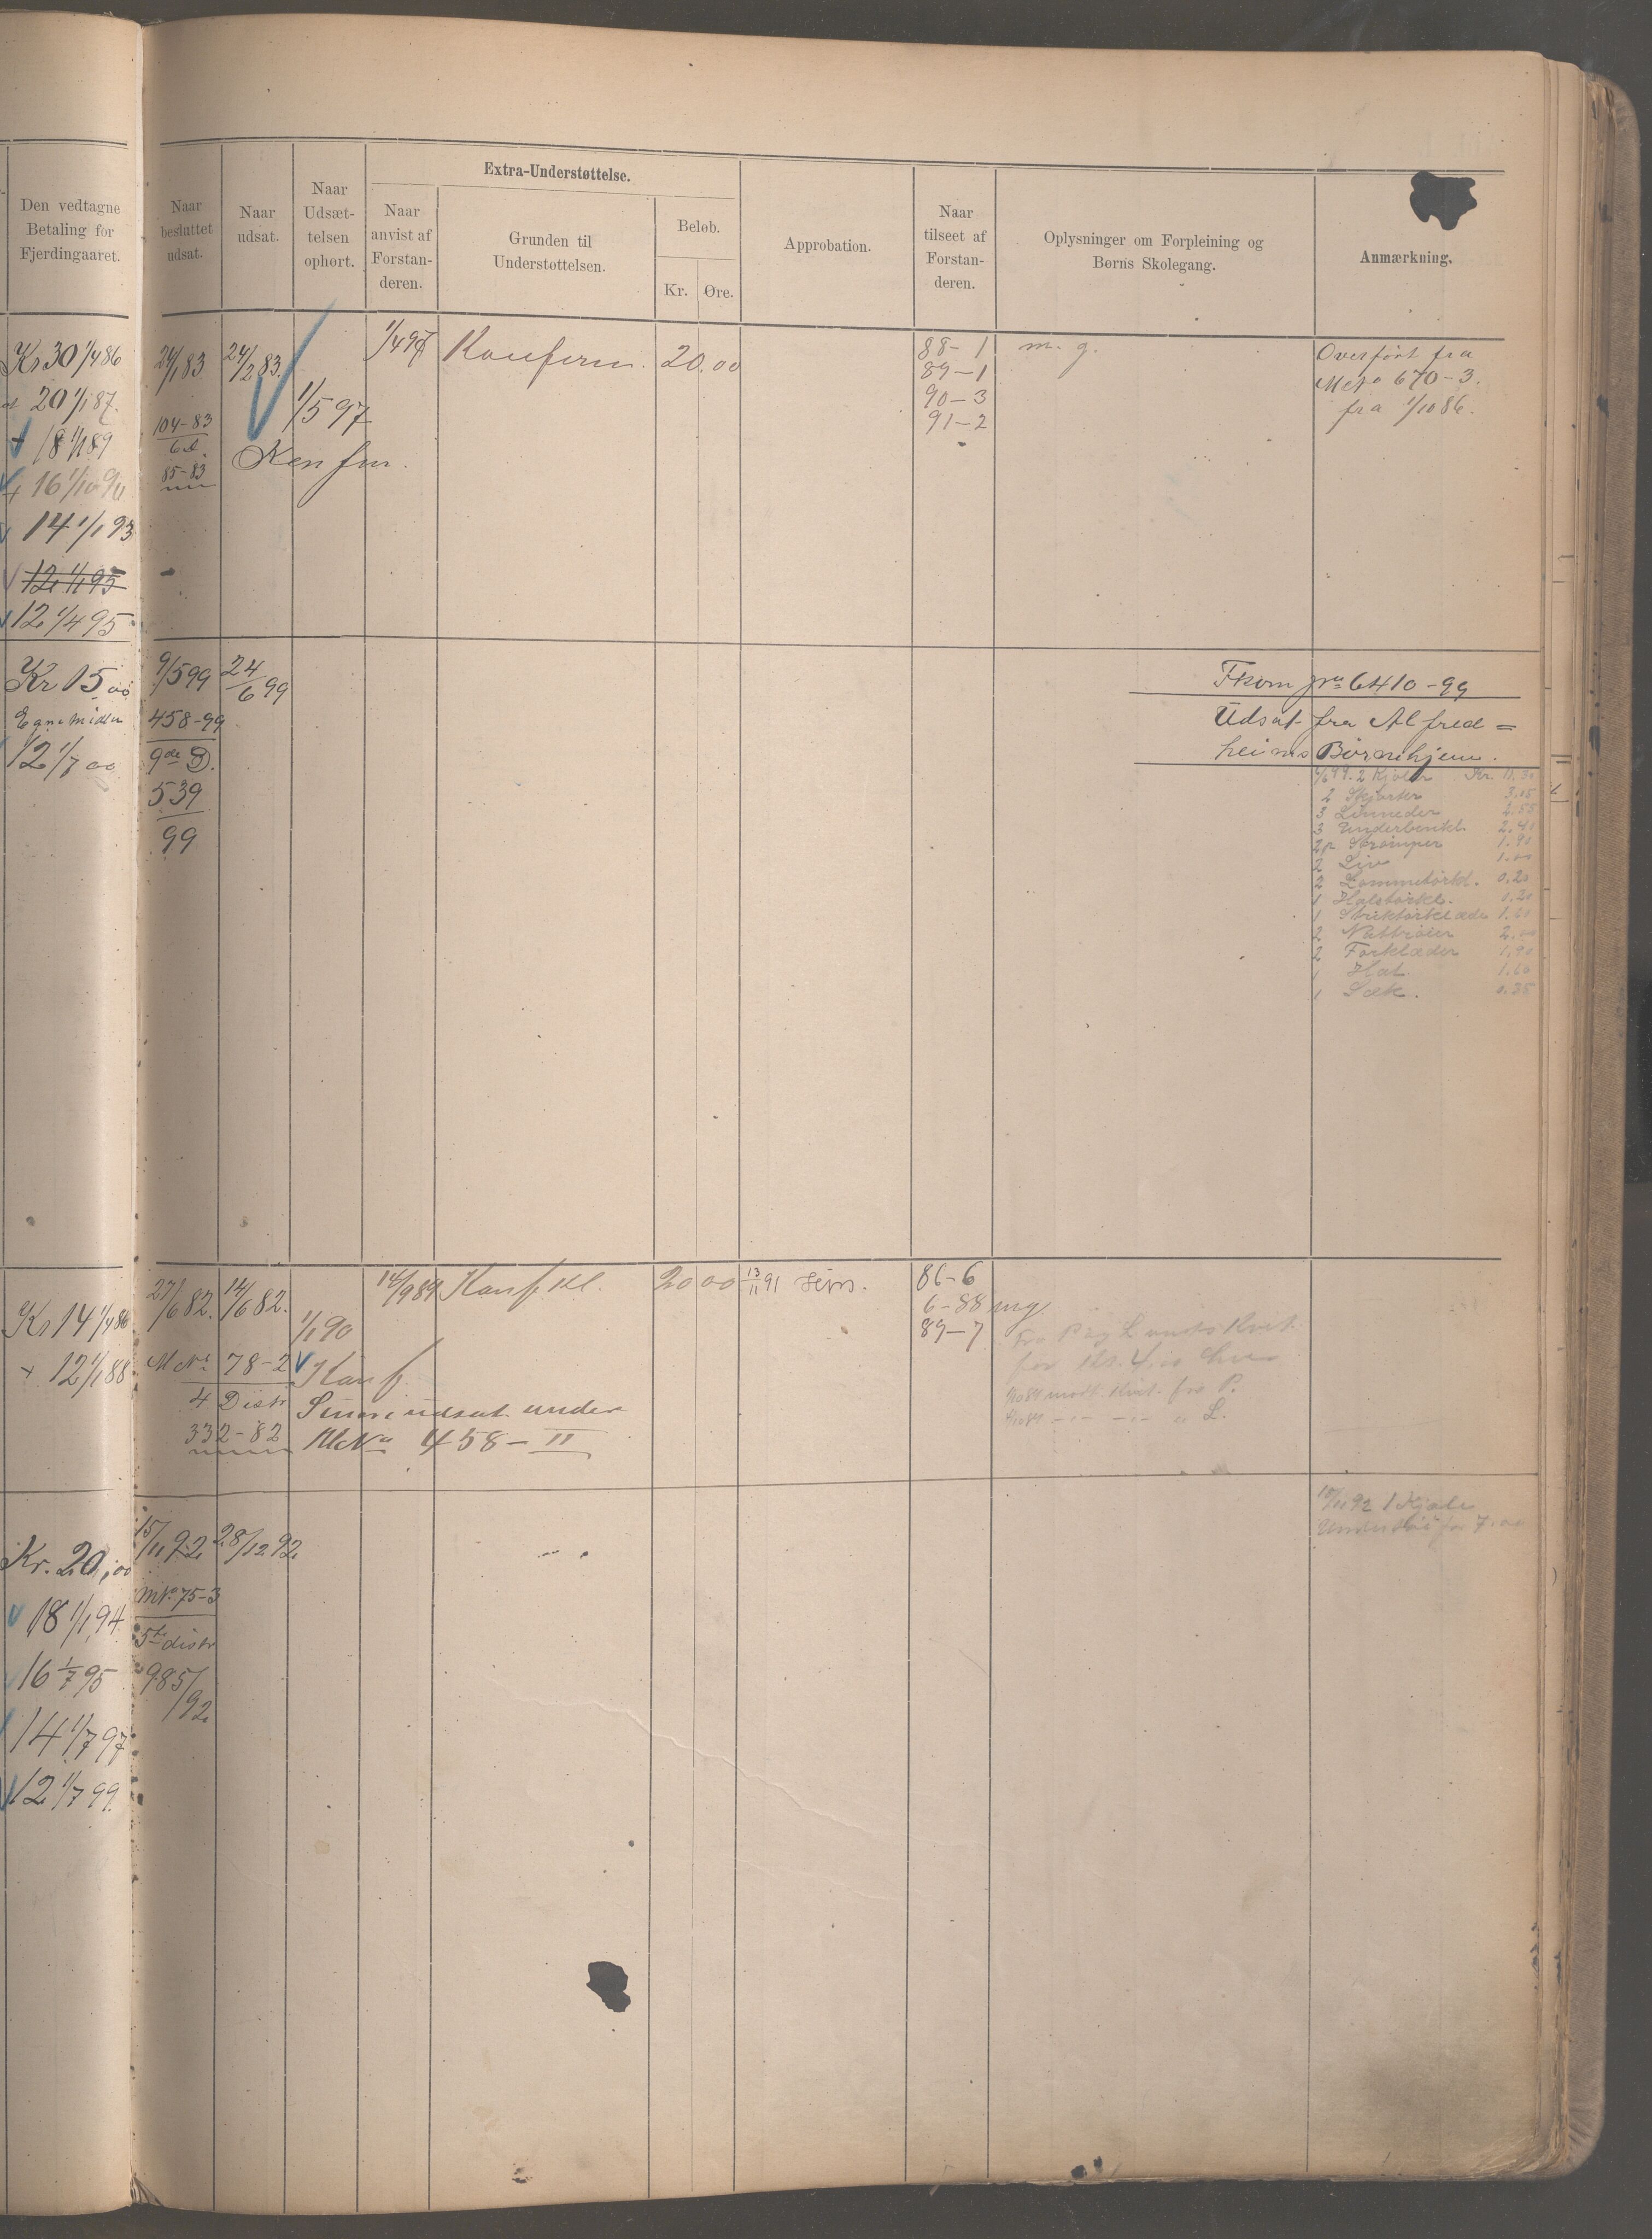 Den vedtagne
Betaling for
Fjerdingaaret.
Naar
besluttet
udsat.
Naar
udsat.
Naar
Udsæt-
telsen
ophørt.
Extra-Understøttelse.
Naar
anvist af
Forstan-
deren.
Grunden til
Understøttelsen.
Beløb.
Kr. Øre.
Approbation.
Naar
tilseet af
Forstan-
deren.
Oplysninger om Forpleining og
Børns Skolegang.
Anmærkning.
Kr 30 1/4 86
20 1/1 87.
18 1/1 89
16 1/10 90
14 1/1 93
12 1/1 95
12 1/4 95
24/1 83
104-83
6 d.
85-83
24/2 83.
1/5 97
Konfirm.
1/4 97
Konfirm.
20.00
88-1
89-1
90-3
91-2
m. g.
Overført fra
M No 670-3.
fra 1/10 86.
Kr 15.00
Egne Midler
12 1/7 00
9/5 99
458-99
9de D.
539
99
24/6 99
Fkom jr. 6410-99
Udsat fra Alfred=
heims Børnehjem.
2 Kjoler Kr. 11.30
2 Skjørter
3 Linneder
3 Underbenkl. 2.40
2 p. Strømper 1.90
2 Liv 1.00
2 Lommetørkl. 0.20
1 Halstørkl. 0.20
1 Striktørklæde 1.60
2 Nattrøier 2.00
2 Forklæder 1.90
1 Hat 1.60
1 Sæk. 0.35
Kr 14 1/4 86
12 1/1 88
27/6 82.
14/6 82.
1/1 90
M No 78-2
4 Distr
332-82
Konf.
Senere udsat under
M No 458-II
14/9 89
Konf. kl.
20 00
13/11 91
86-6
6-88 mg
89-7
for Kr. 4.00
Kr. 20,00
18 1/1 94.
16 1/7 95
14 1/7 97
12 1/7 99.
15/11 92
M No 75-3
5te distr
985/92
28/12 92
15/11 92 1 Kjole
for 7.00